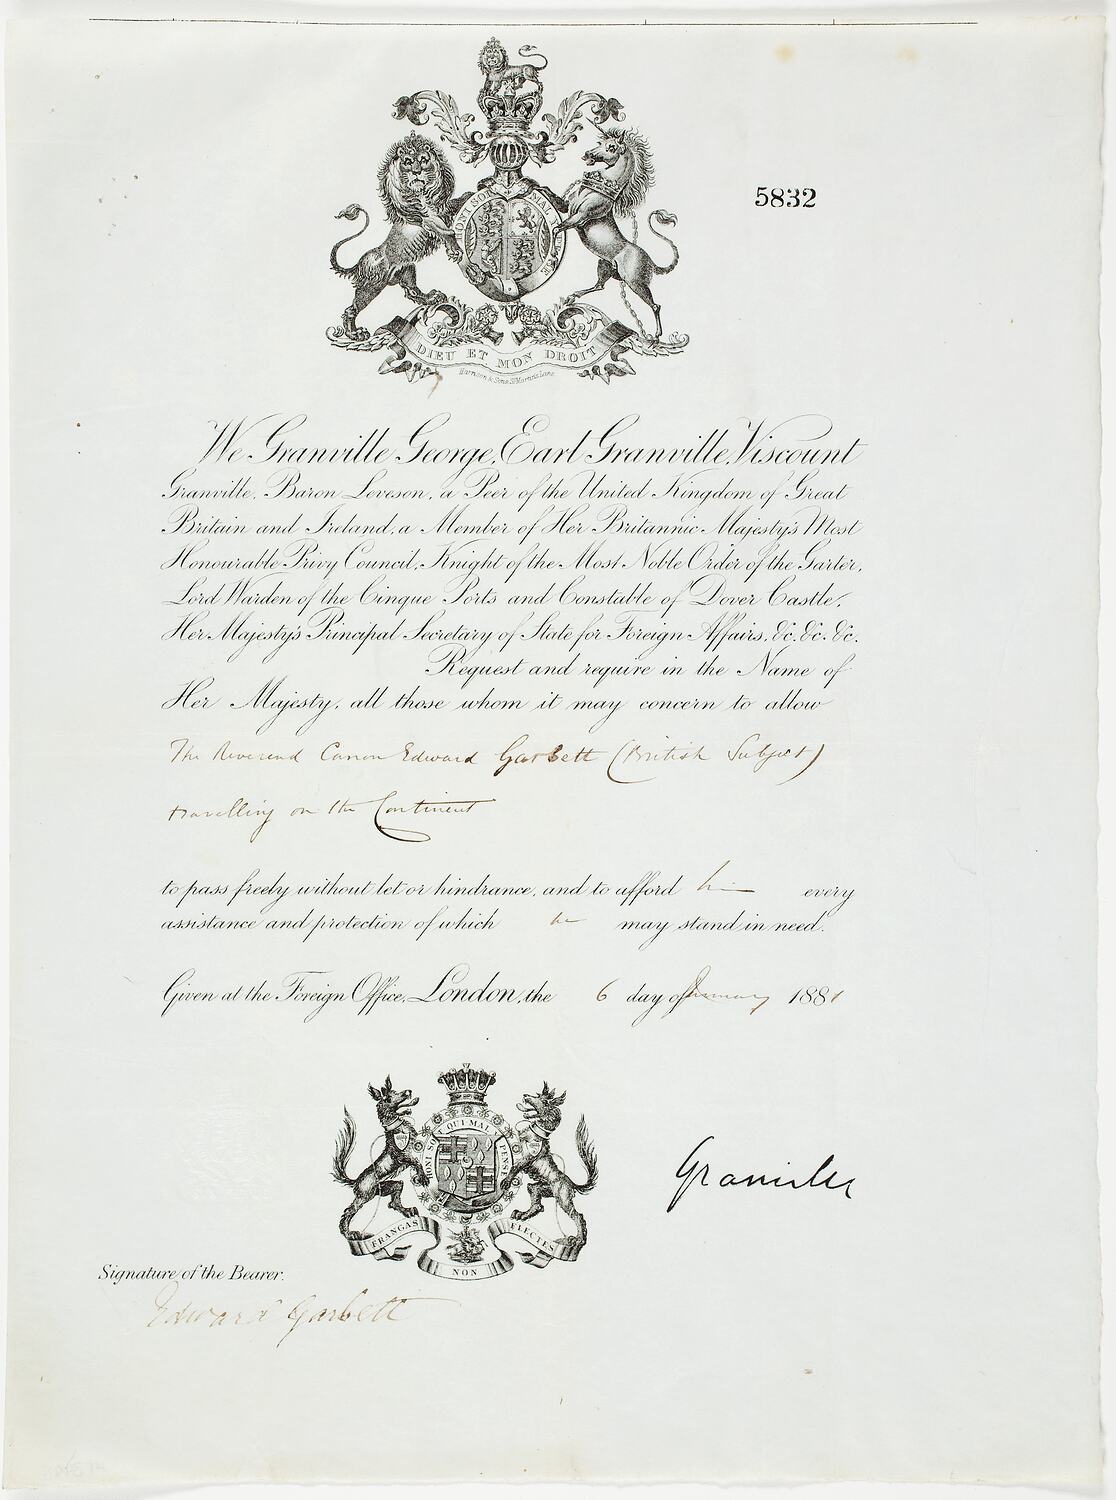 5832
HONI SOIT QUI MAL Y PENSE
DIEU ET MON DROIT
Harrison & Sons, St Martin's Lane
We Granville George, Earl Granville, Viscount
Granville, Baron Leveson, a Peer of the United Kingdom of Great
Britain and Ireland, a Member of Her Britannic Majesty's Most
Honourable Privy Council, Knight of the Most Noble Order of the Garter,
Lord Warden of the Cinque Ports and Constable of Dover Castle,
Her Majesty's Principal Secretary of State for Foreign Affairs, &c. &c. &c.
Request and require in the Name of
Her Majesty, all those whom it may concern to allow
The Reverend Canon Edward Garbett (British Subject)
travelling on the Continent
to pass freely without let or hindrance, and to afford him every
assistance and protection of which he may stand in need.
Given at the Foreign Office, London, the 6 day of January 1881
HONI SOIT QUI MAL Y PENSE
FRANGAS NON FLECTES
Granville
Signature of the Bearer.
Edward Garbett